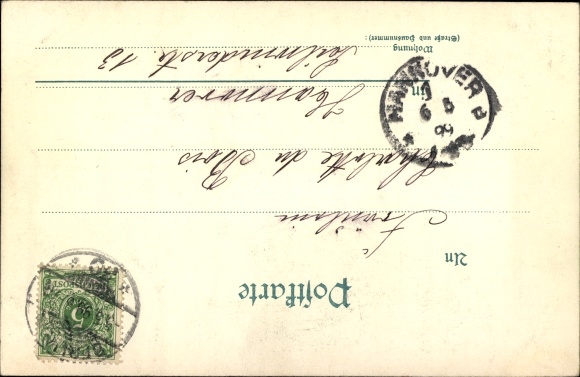 Postkarte
An
Fräulein
Charlotte du Bois
in Hannover
Wohnung
(Straße und Hausnummer):
Seilwinderstr. 13
HANNOVER
99
REICHSPOST
5